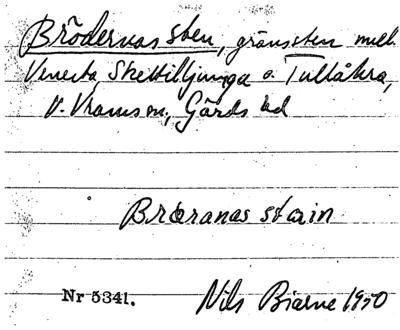 Brödernas sten, gränssten mell.
Venesta, Skettilljunga o. Tullåkra,
V. Vrams sn, Gärds hd
Bræranas stain
Nr 5341. Nils Bjerne 1950